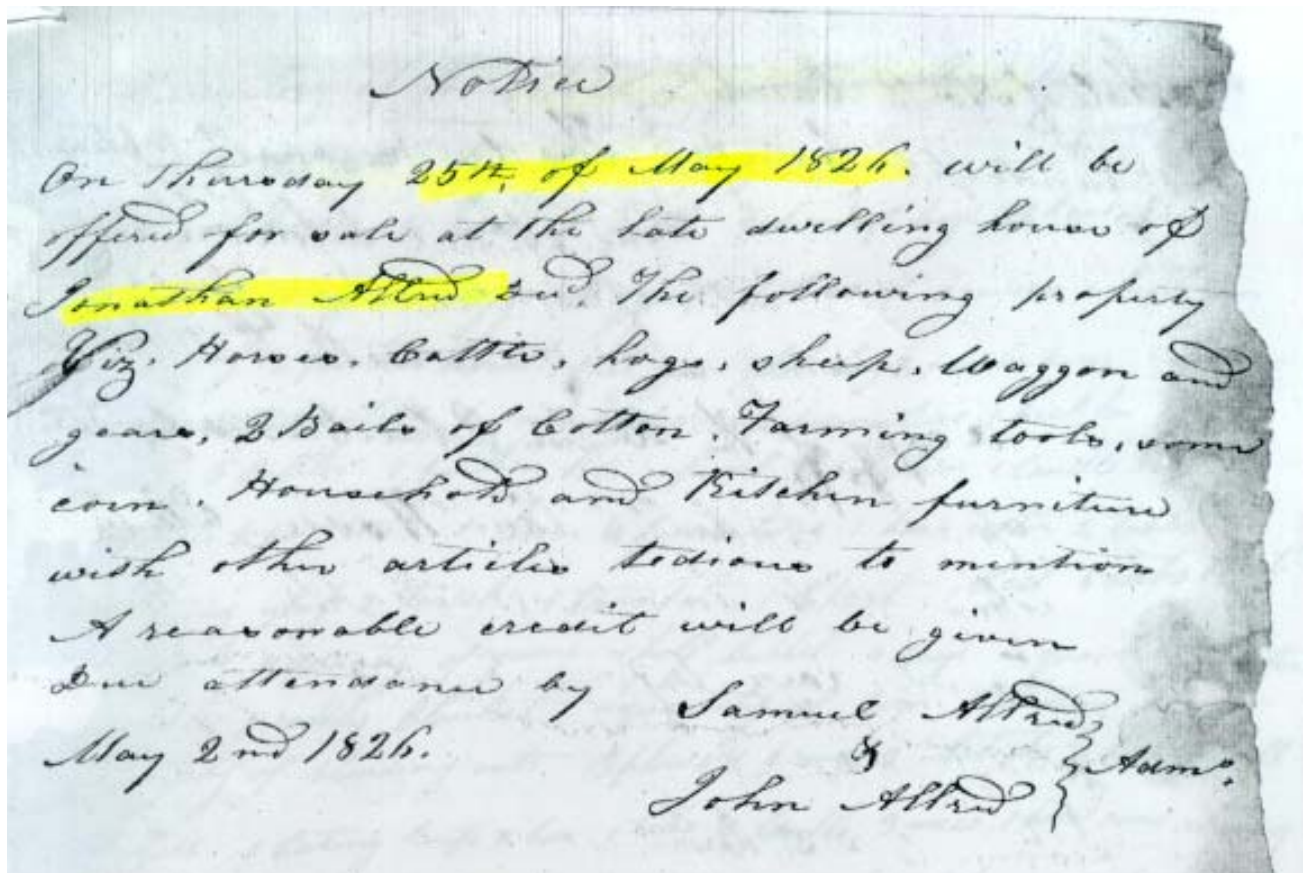 Notice
On Thursday 25th, of May 1826. will be
offered for sale at the late dwelling house of
Jonathan Allred Dec'd. The following property
Viz. Horses, Cattle, hogs, sheep, Waggon and
gears, 2 Bails of Cotton. Farming tools, some
corn. Household and Kitchen furniture
with other articles tedious to mention
A reasonable credit will be given
Due attendance by Samuel Allred
May 2nd 1826. & Adms.
John Allred